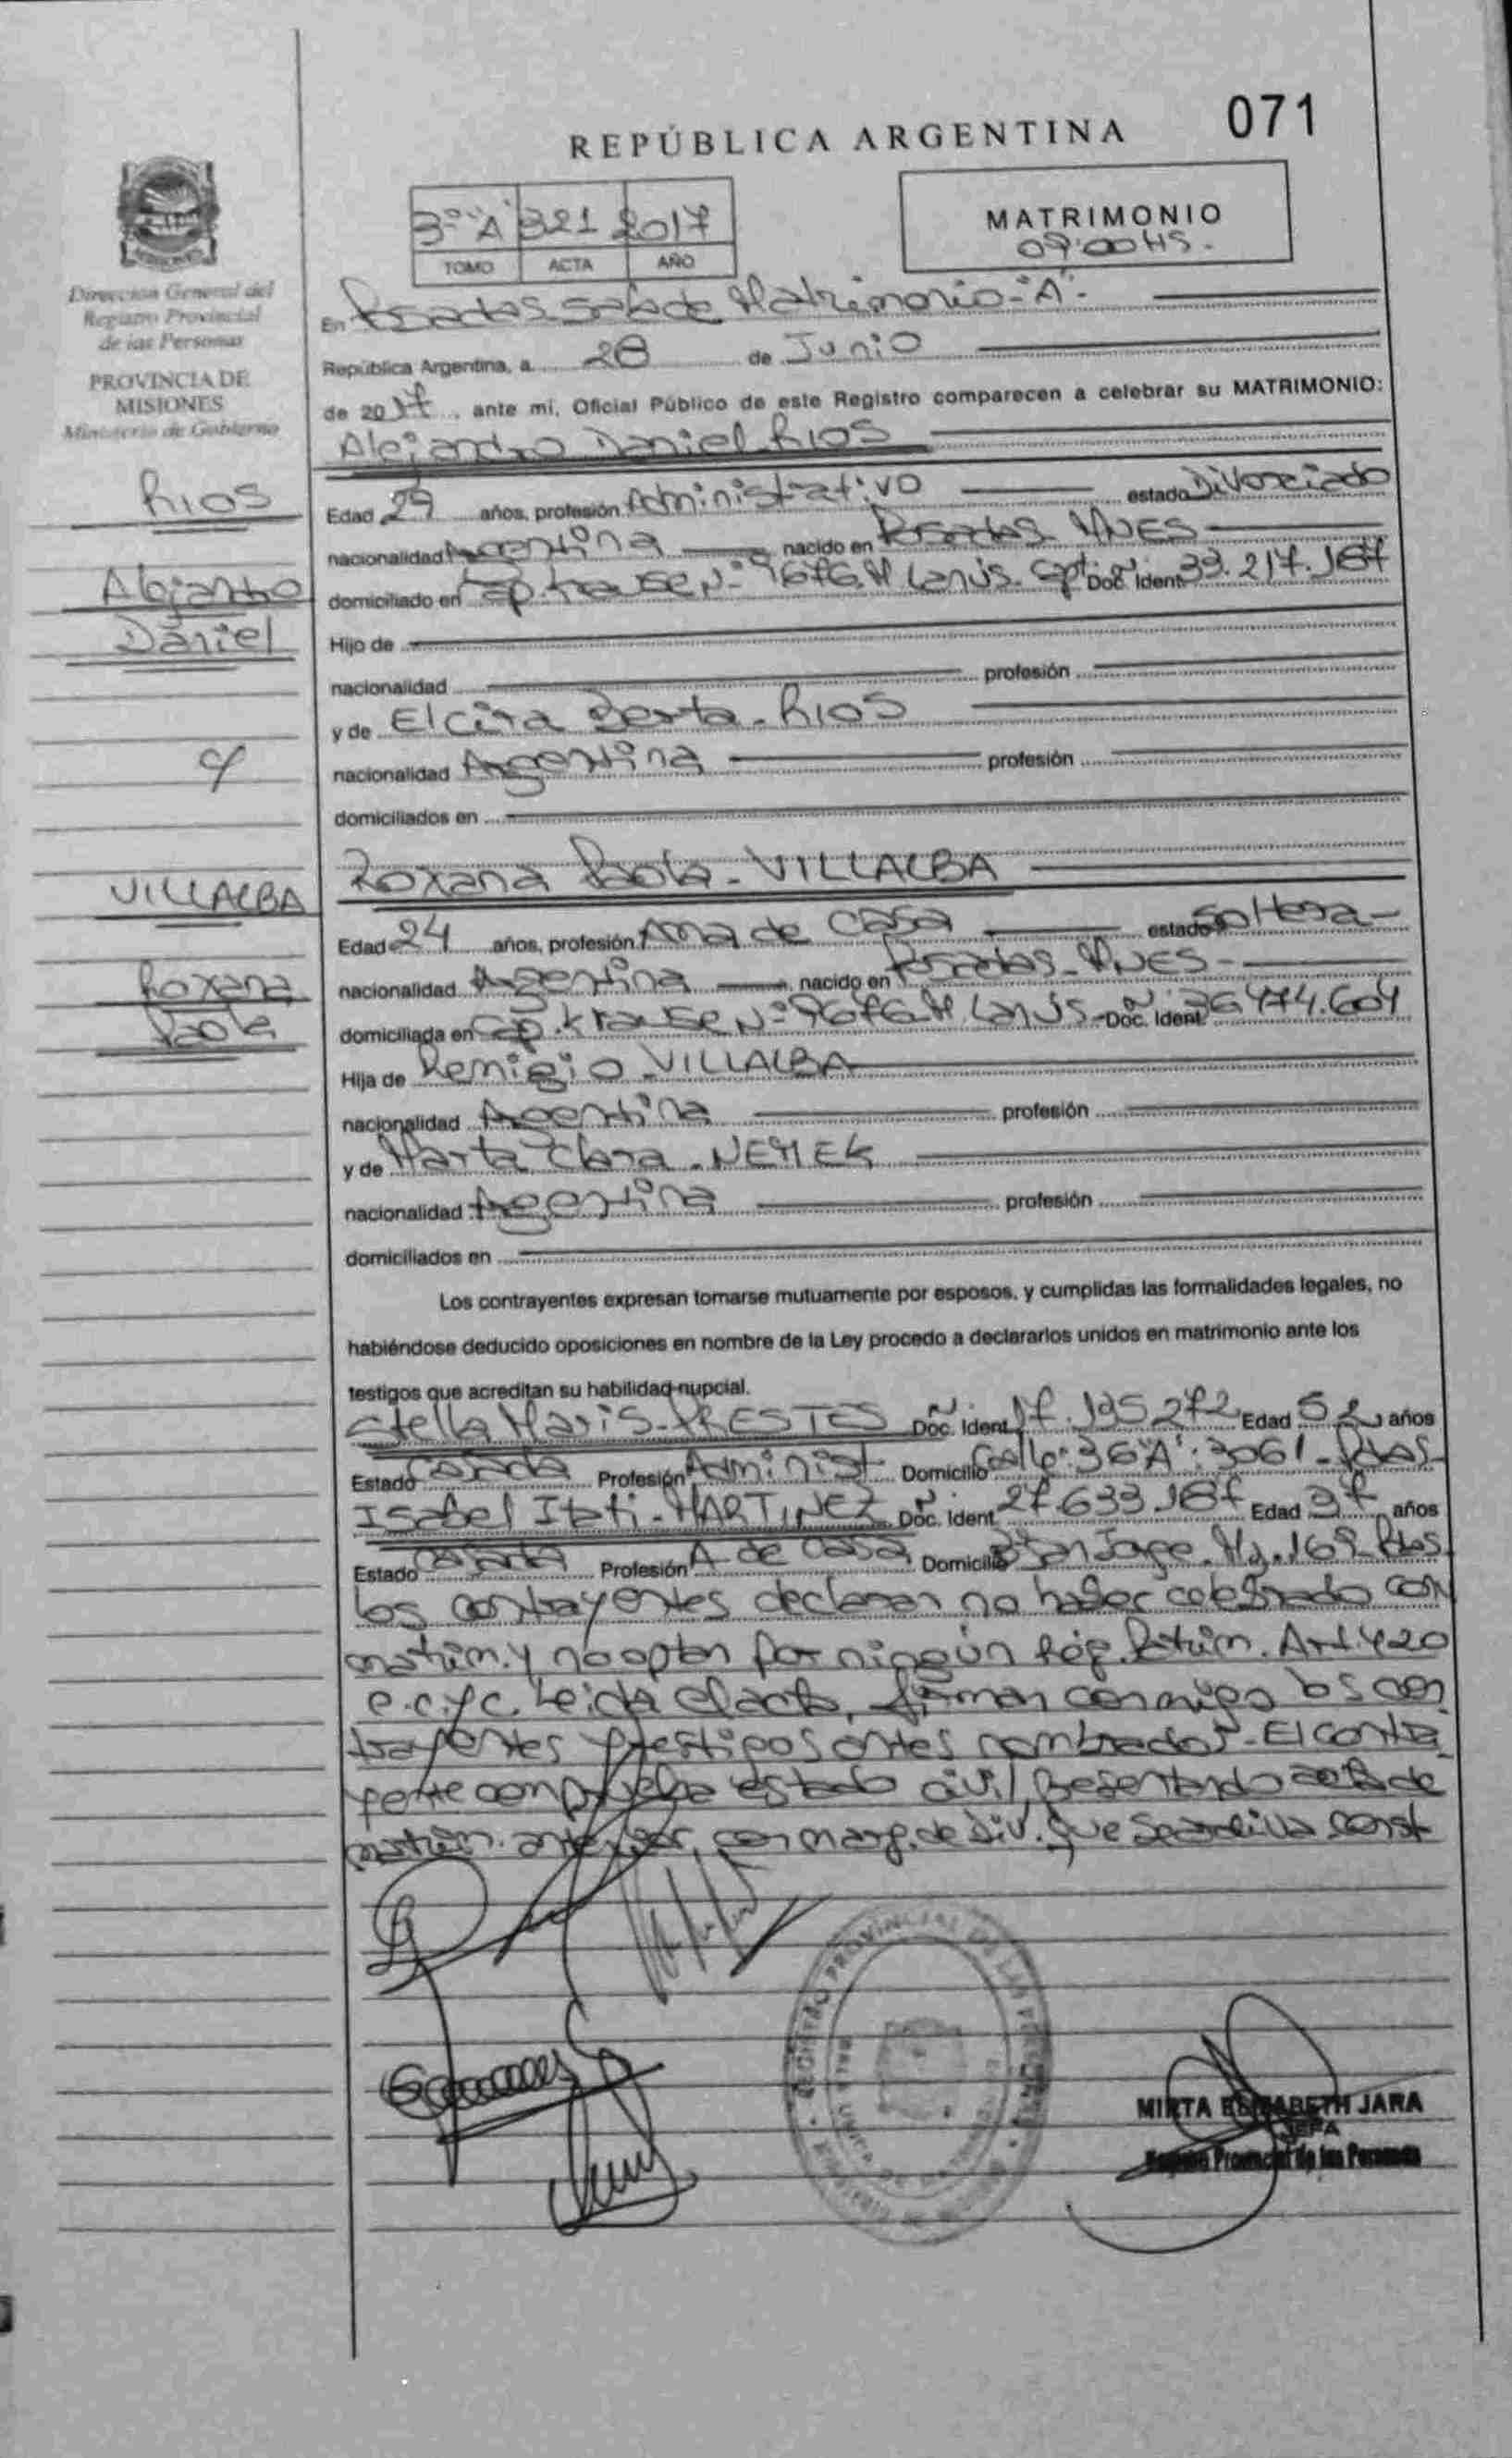 REPÚBLICA ARGENTINA
071
3º "A" 321 2017
TOMO ACTA AÑO
MATRIMONIO
09:00 HS.
Dirección General del
Registro Provincial
de las Personas
PROVINCIA DE
MISIONES
Ministerio de Gobierno
En Posadas sala de Matrimonio "A".
República Argentina, a 28 de Junio
de 2017, ante mi, Oficial Público de este Registro comparecen a celebrar su MATRIMONIO:
Alejandro Daniel RIOS
RIOS
Alejandro
Daniel
Edad 29 años, profesión Administrativo estado Divorciado
nacionalidad Argentina nacido en Posadas MNES
domiciliado en Cap. Krause Nº 9676. M. Lanús. Doc. Ident 33.217.187
Hijo de
nacionalidad profesión
y de Elcira Berta RIOS
nacionalidad Argentina profesión
domiciliados en
Roxana Paola - VILLALBA
VILLALBA
Roxana
Paola
Edad 24 años, profesión Ama de Casa estado Soltera
nacionalidad Argentina nacido en Posadas - MNES
domiciliada en Cap. Krause Nº 9676 M. Lanús - Doc. Ident 36.474.604
Hija de Remigio VILLALBA
nacionalidad Argentina profesión
y de Marta Clara - NEMEK
nacionalidad Argentina profesión
domiciliados en
Los contrayentes expresan tomarse mutuamente por esposos, y cumplidas las formalidades legales, no
habiéndose deducido oposiciones en nombre de la Ley procedo a declararlos unidos en matrimonio ante los
testigos que acreditan su habilidad nupcial.
Stella Maris - PRESTES Doc. Ident 17.195.272 Edad 52 años
Estado Casada Profesión Administ Domicilio Calle: 36"A": 3061 - Pdas-
Isabel Itati - MARTINEZ Doc. Ident 27.633.187 Edad 37 años
Estado Casada Profesión A de casa Domicilio Jorge. 169 Pdas
los contrayentes declaran no haber celebrado con
matrim. y no optan por ningún Rég. Patrim. Art. 420
e. C. y C. Leída el acta, firman conmigo los con
trayentes y testigos antes nombrados - El contra
yente comprueba estado civil, presentando acta de
matrim. anterior, con marg. de Div. que se archiva const
REGISTRO PROVINCIAL DE LAS PERSONAS
MIRTA ELIZABETH JARA
JEFA
Registro Provincial de las Personas